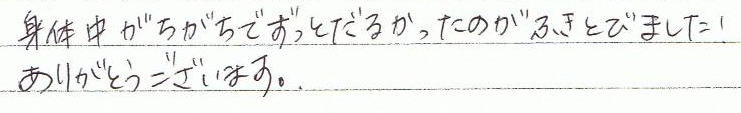 身体中がちがちでずっとだるかったのがふきとびました!
ありがとうございます。